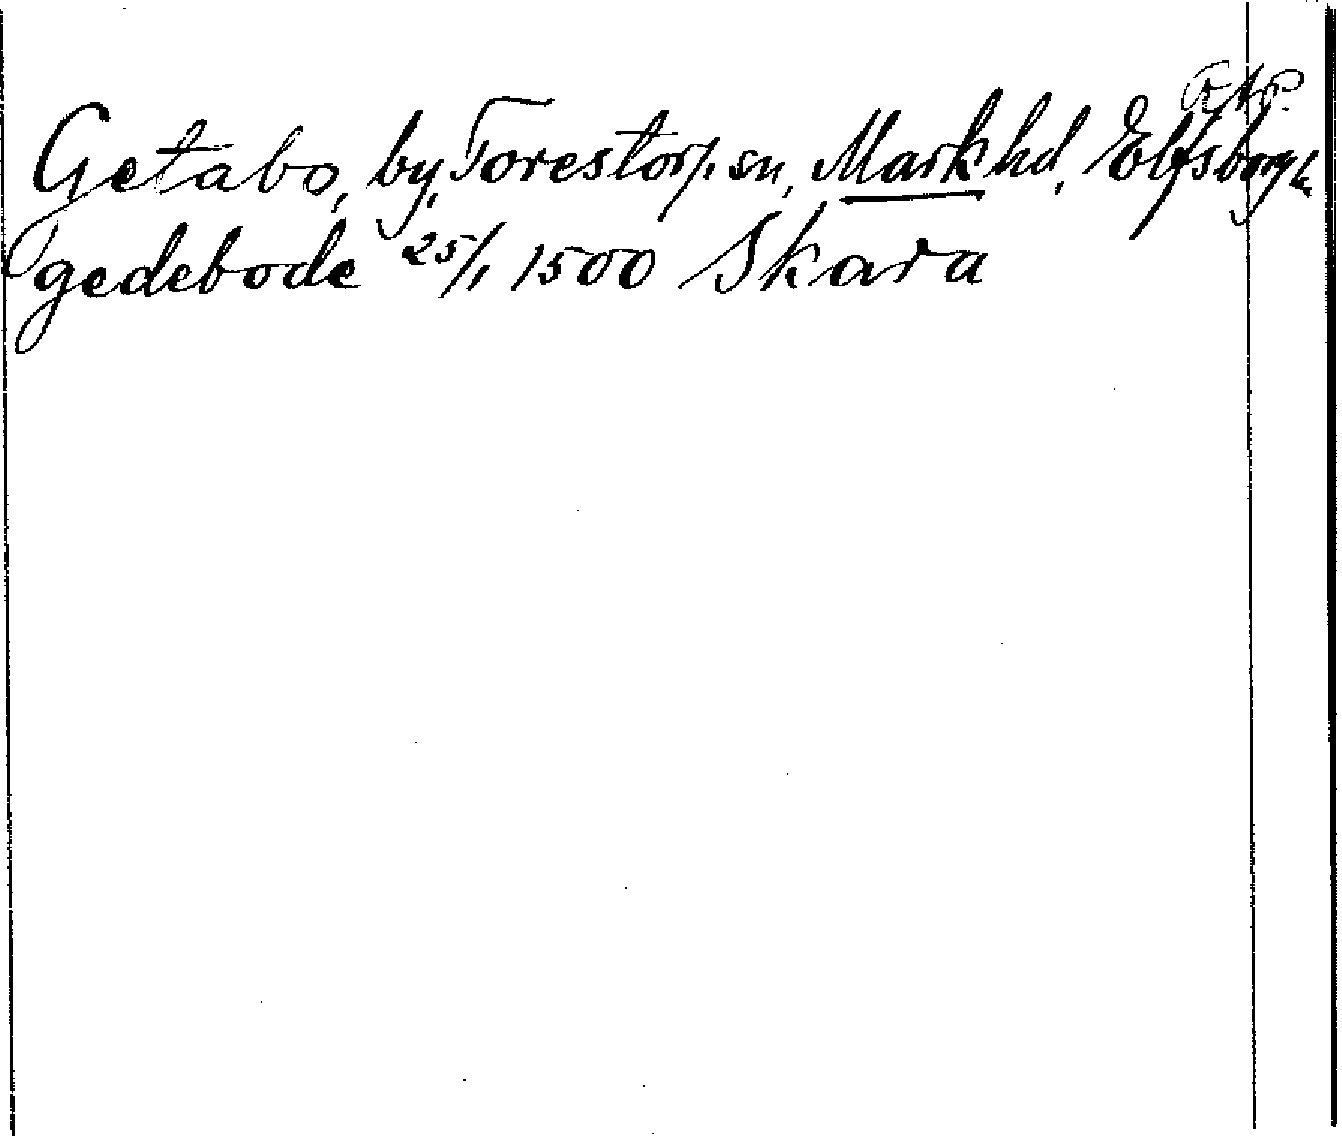 Getabo, by, Torestorp sn, Mark hd, Elfsborg l.
gedebode 25/1 1500 Skara